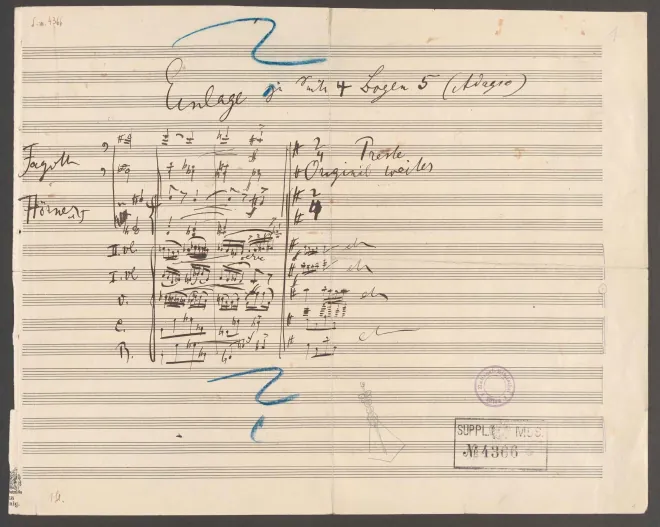 S.m. 4366
Einlage zu Seite 4 Bogen 5 (Adagio)
Fagotti
2
4
Presto
Original weiter
Hörner
2
4
II. vl
I. vl
v.
c.
B.
SUPPL. MUS.
№ 4366